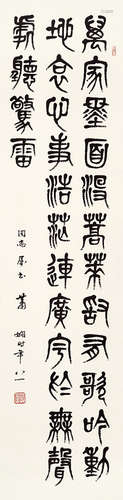 萬家墨面沒蒿萊敢有歌吟動
地哀心事浩茫連廣宇於無聲
處聽驚雷
屬書 蕭嫻時年八一